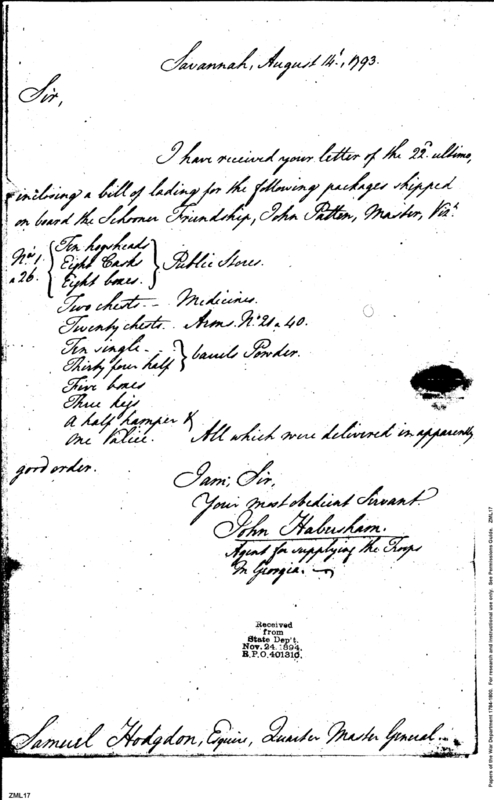 Savannah, August 14t, 1793.
Sir,
I have received your letter of the 22d. ultimo,
inclosing a bill of lading for the following packages shipped
on board the Schooner Friendship, John Patten, Master, Vizt.
Ten hogsheads
Nos. 1 Eight Casks Public Stores.
a 26. Eight boxes.
Two chests - - Medicines.
Twenty chests - Arms. No. 21 a 40.
Ten single - -
Thirty four half barrels Powder.
Five boxes
Three kegs
A half hamper &
One Valice. All which were delivered in apparently
good order.
I am, Sir,
Your most obedient Servant.
John Habersham.
Agent for supplying the Troops
In Georgia.
Received
from
State Dep't.
Nov. 24. 1894.
R.P.O. 401310.
Samuel Hodgdon, Esquire, Quarter Master General.
ZML17
Papers of the War Department 1784-1800. For research and instructional use only. See Permissions Guide. ZML17